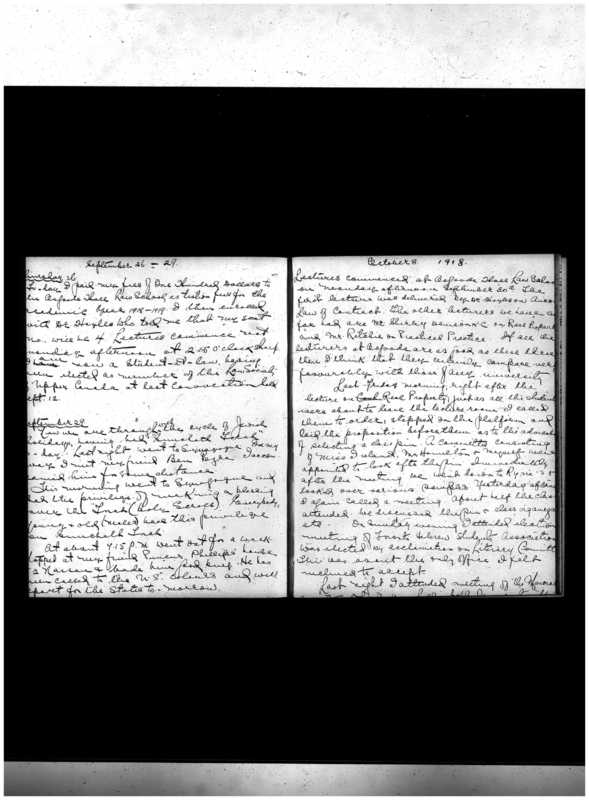 September 26 – 29.
To-day I paid my fees of One Hundred Dollars to
Osgoode Hall Law School as tuition fees for the
academic year 1918-1919. I then enrolled
with Dr Hoyles who told me that my seat
no. will be 4. Lectures commence next
Monday afternoon at 2.45 o'clock sharp
I am now a student-at-law, having
been elected as member of the Law Society
Upper Canada at last convocation held
Sept 12
September 29
Now we are through the cycle of Jewish
holidays, having had Simchath Torah
to-day. Last night went to Synagogue. On my
way I met my friend Ben
him for some distance
This morning went to Synagogue and
had the privilege of &
over the Torah (Holy Scroll). Everybody,
young & old (males) have this privilege
on Simchath Torah
At about 7.15 P.M. went out for a walk.
Stopped at my friend Phillips' house
& bade him God speed. He has
been called to the U.S. colours and will
depart for the States to-morrow.
October 8 1918.
Lectures commenced at Osgoode Hall Law School
on Monday afternoon September 30th. The
first lecture was delivered by Mr
Law of Contract. The other lecturers we have so
far had are Mr Shirley Denison K.C. on Real Property
and Mr on Practice. If all the
lecturers at Osgoode are as good as these three
then I think that they certainly compare very
favourably with those of any university
Last Friday morning, right after the
lecture on Real Property, just as all the students
were about to leave the lecture room I called
them to order, stepped on the platform and
laid the proposition before them as to the advisability
of selecting a class pin. A committee consisting
of Miss Island, Mr Hamilton & myself were
appointed to look after the pin. Immediately
after the meeting we went down to Ryrie's &
looked over various samples. Yesterday afternoon
I again called a meeting. About half the class
attended. We discussed the pin & class organization
etc. On Sunday evening I attended election
meeting of Toronto Hebrew Students Association
Was elected by acclamation on Literary Committee
This was about the only office I felt
inclined to accept
Last night I attended meeting of the